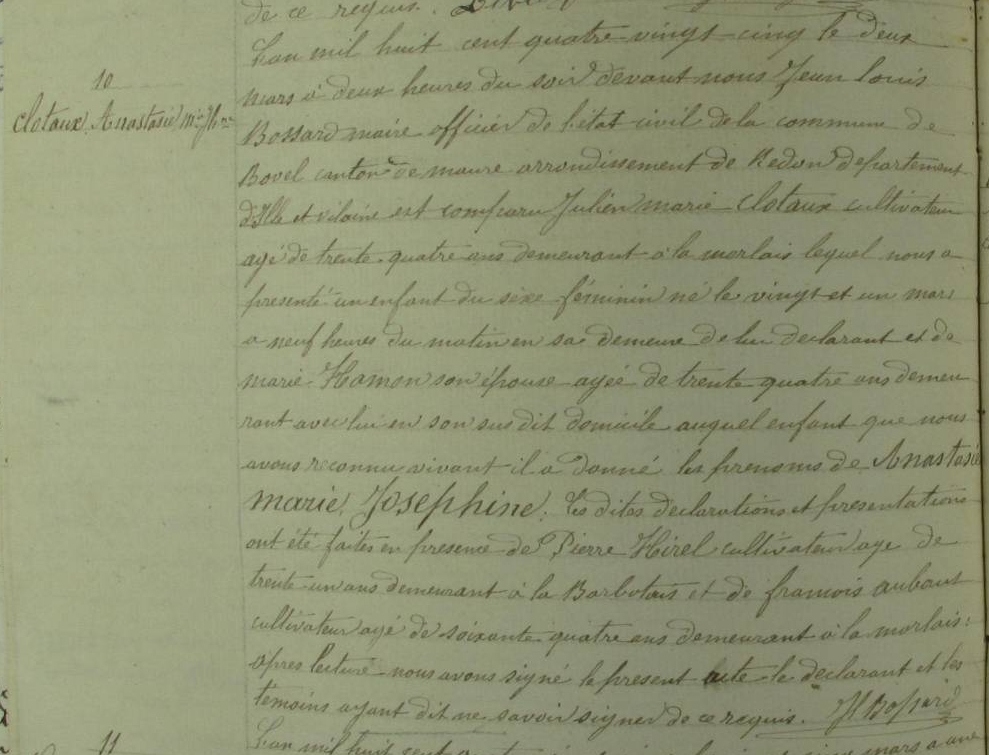 de ce requis.
L'an mil huit cent quatre vingt cinq le deux
10
mars à deux heures du soir devant nous Jean Louis
Clotaux Anastasie Mie Jhne
Bossard maire officier de l'état civil de la commune de
Bovel canton de maure arrondissement de Redon departement
d'Ille et vilaine est comparu Julien marie Clotaux cultivateur
agé de trente quatre ans demeurant à la morlais lequel nous a
presenté un enfant du sexe féminin né le vingt et un mars
a neuf heures du matin en sa demeure de lui declarant et de
marie Hamon son épouse agée de trente quatre ans demeu
rant avec lui en son sus dit domicile auquel enfant que nous
avons reconnu vivant il a donné les prenoms de Anastasie
marie Josephine. Les dites déclarations et presentations
ont été faites en presence de Pierre Hirel cultivateur age de
trente un ans demeurant à la Barbotais et de francois aubaut
cultivateur agé de soixante quatre ans demeurant à la morlais:
après lecture nous avons signé le present acte le declarant et les
temoins ayant dit ne savoir signer de ce requis. Jl Bossard
11
L'an mil huit cent mars a une